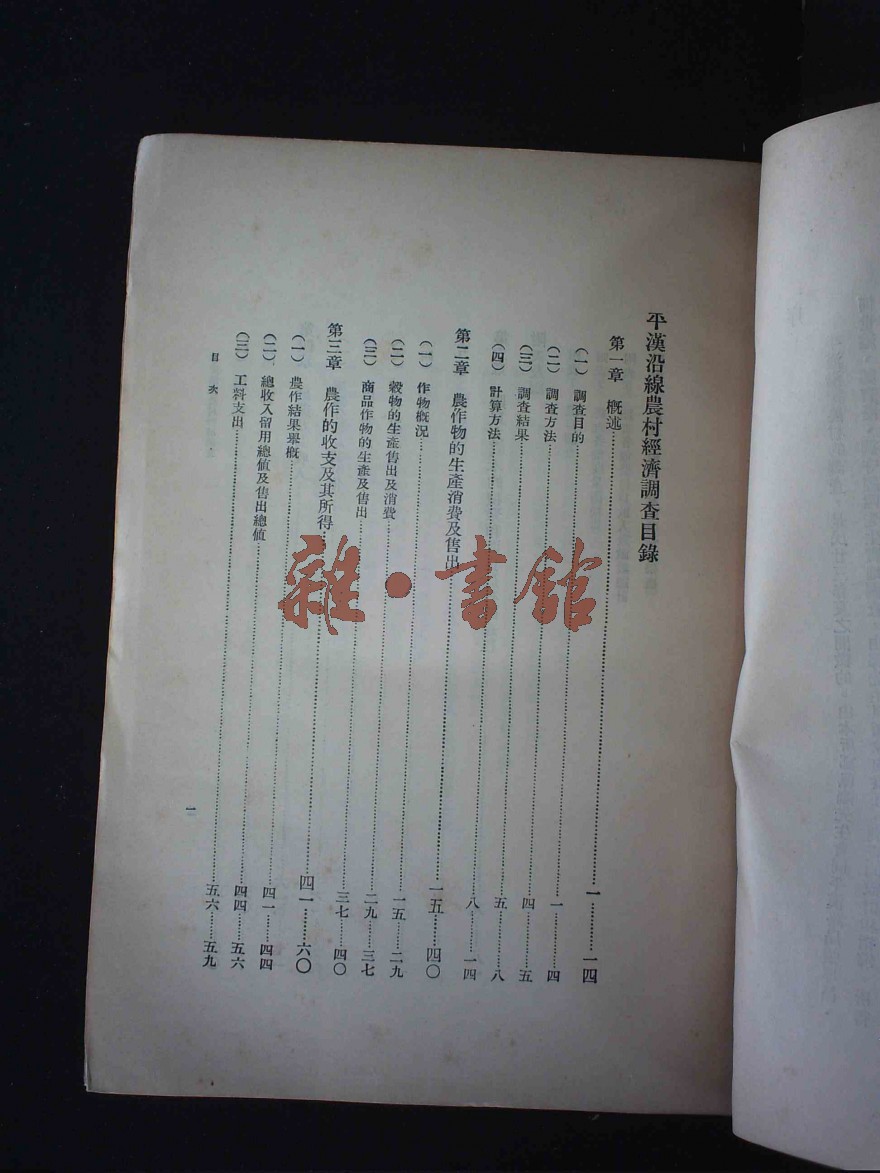 平漢沿線農村經濟調查目錄
第一章 概述……一……一四
(一) 調查目的……一……四
(二) 調查方法……四……五
(三) 調查結果……五……八
(四) 計算方法……八……一四
第二章 農作物的生產消費及售出……一五……四〇
(一) 作物概況……一五……二九
(二) 穀物的生產售出及消費……二九……三七
(三) 商品作物的生產及售出……三七……四〇
第三章 農作的收支及其所得……四一……六〇
(一) 農作結果舉概……四一……四四
(二) 總收入留用總值及售出總值……四四……五六
(三) 工料支出……五六……五九
目次
一
雜·書館